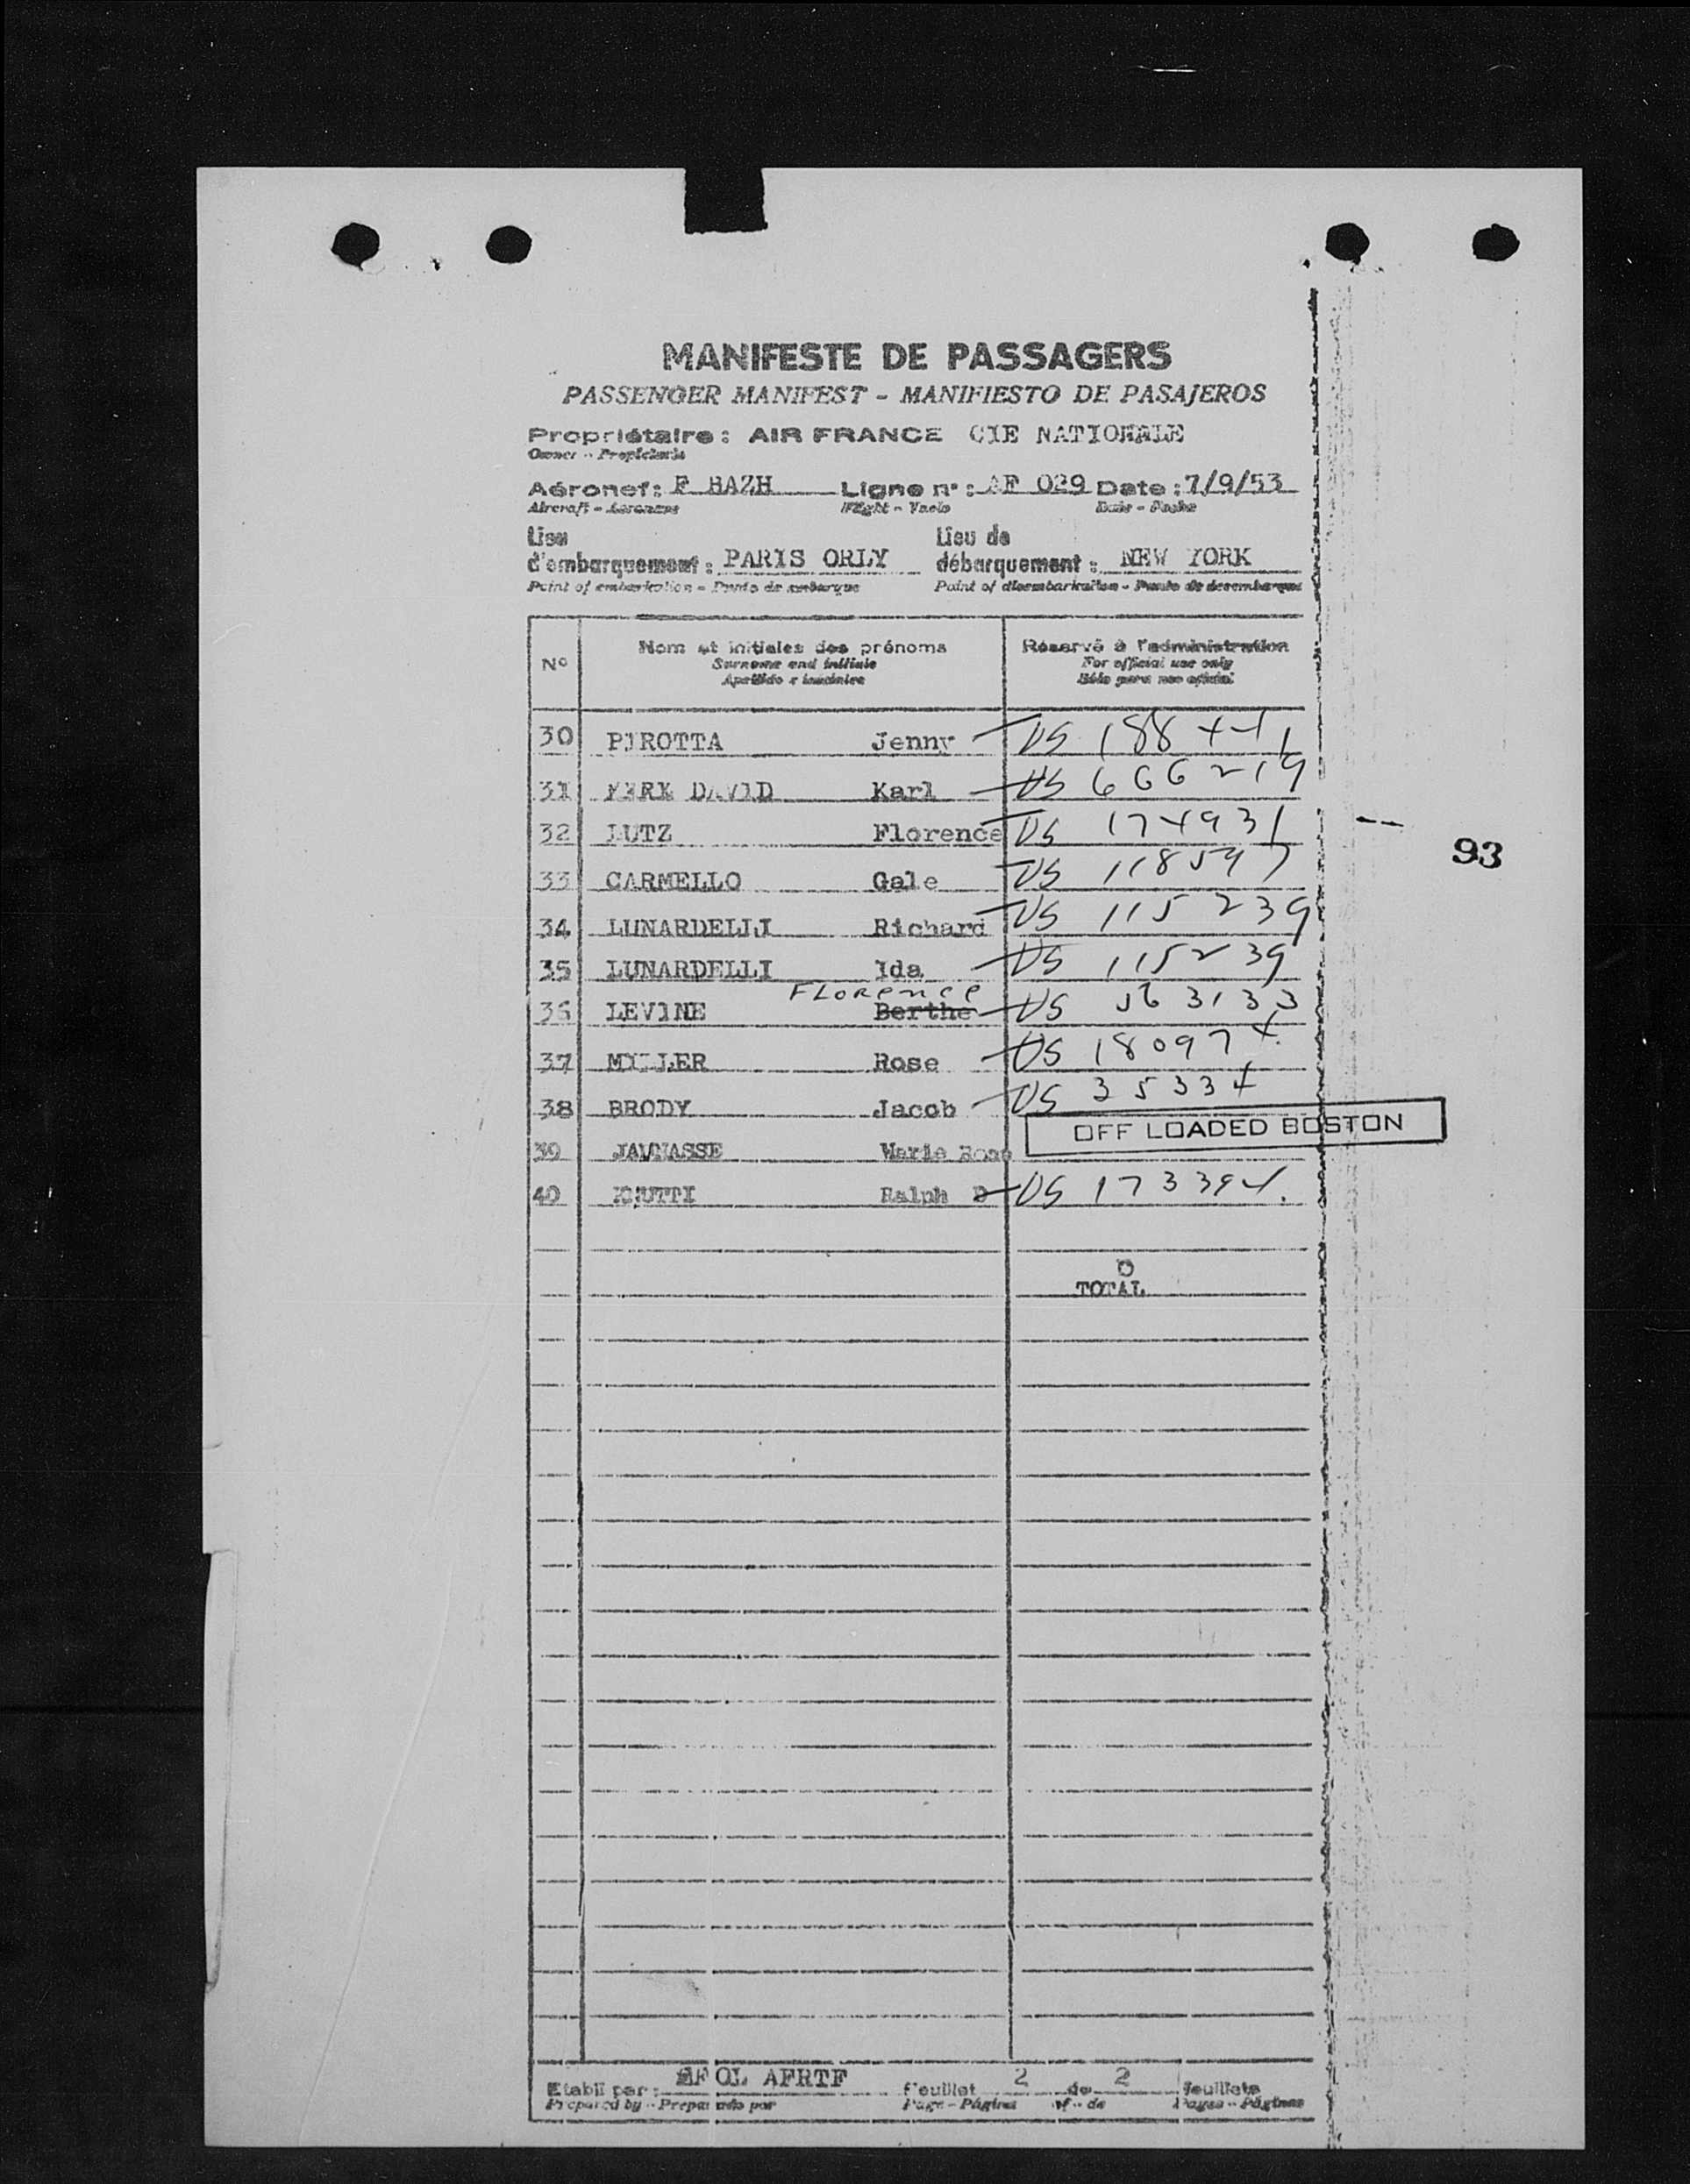 MANIFESTE DE PASSAGERS
PASSENGER MANIFEST - MANIFIESTO DE PASAJEROS
Propriétaire : AIR FRANCE CIE NATIONALE
Owner - Propietario
Aéronef : F BAZH Ligne n° : AF 029 Date : 7/9/53
Aircraft - Aeronave Flight - Vuelo Date - Fecha
Lieu Lieu de
d'embarquement : PARIS ORLY débarquement : NEW YORK
Point of embarkation - Punto de embarque Point of disembarkation - Punto de desembarque
N° Nom et initiales des prénoms Réservé à l'administration
Surname and initials For official use only
Apellido e iniciales Sólo para uso oficial
30 PIROTTA Jenny US
31 DAVID Karl US 666219
32 LUTZ Florence US 174931
93
33 CARMELLO Gale US 118597
34 LUNARDELLI Richard US 115239
35 LUNARDELLI Ida US 115239
FLORENCE
36 LEVINE Berthe US 563133
37 MILLER Rose US 180974
38 BRODY Jacob US 35334
OFF LOADED BOSTON
39 Marie Rose
40 Ralph D US 173394
TOTAL
Etabli par : AF OL AFRTF feuillet 2 de 2 feuillets
Prepared by - Preparado por Page - Página of - de Pages - Páginas